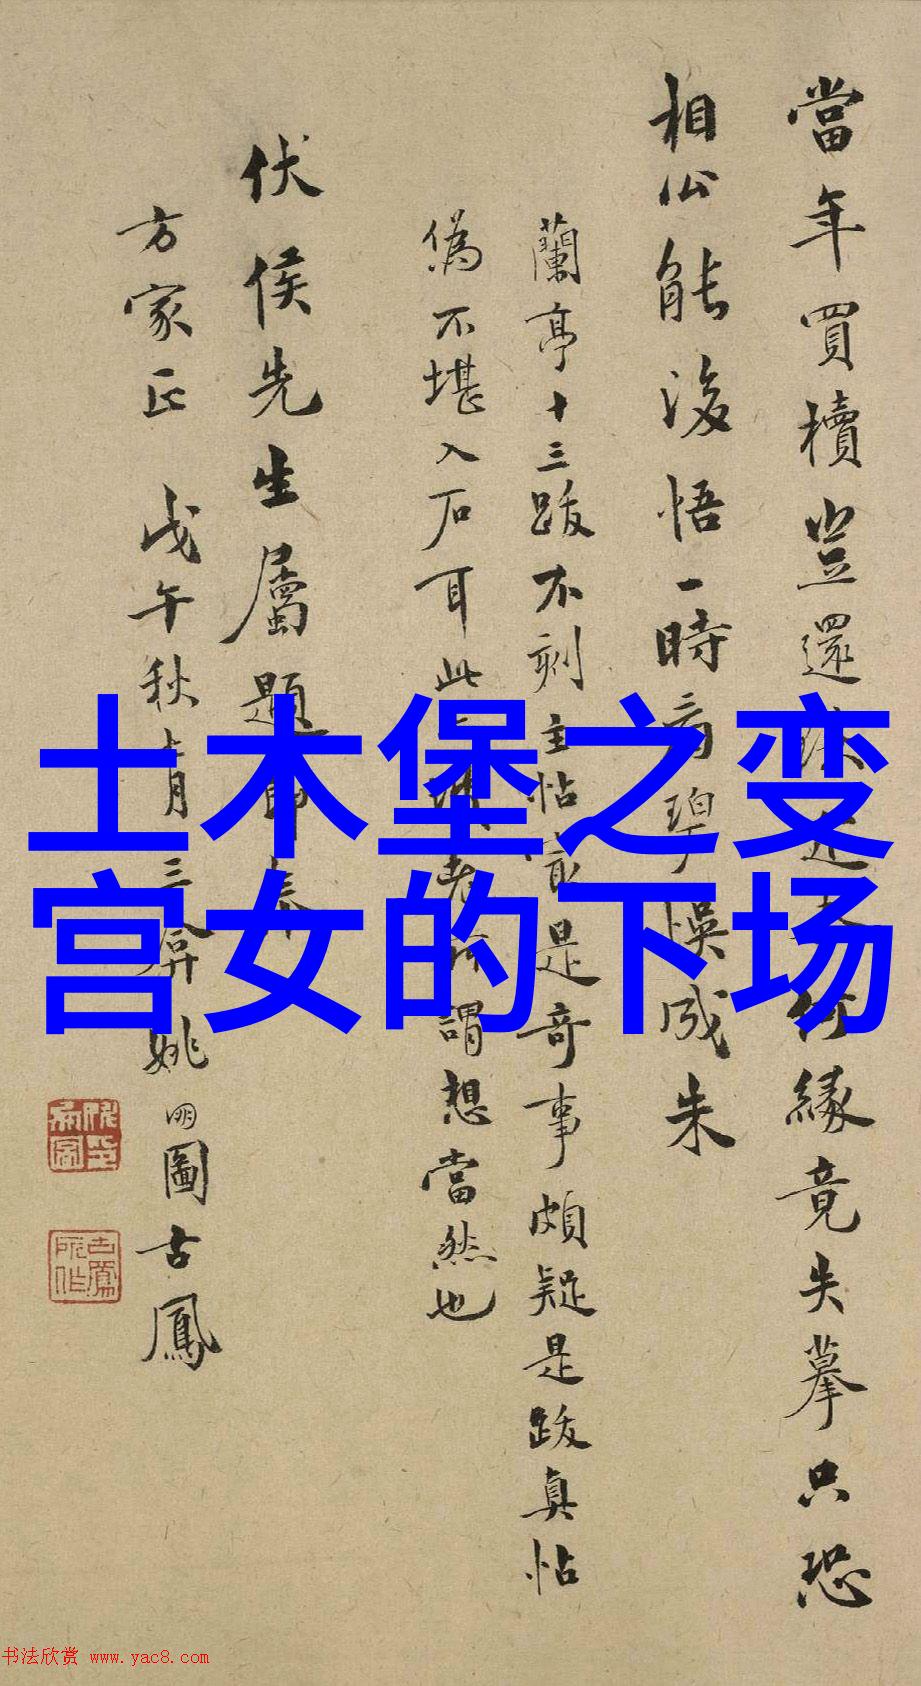 當年買櫝豈還珠
何緣竟失摹只恐
相公能淩悟一時
悮成朱
蘭亭十三跋不刻主帖
是奇事頗疑是跋真帖
偽不堪入石耳此
謂想當然也
伏侯先生屬題
方家正 戊午秋
姚明圖古鳳
土木堡之变
宫女的下场
书法欣赏 www.yac8.com